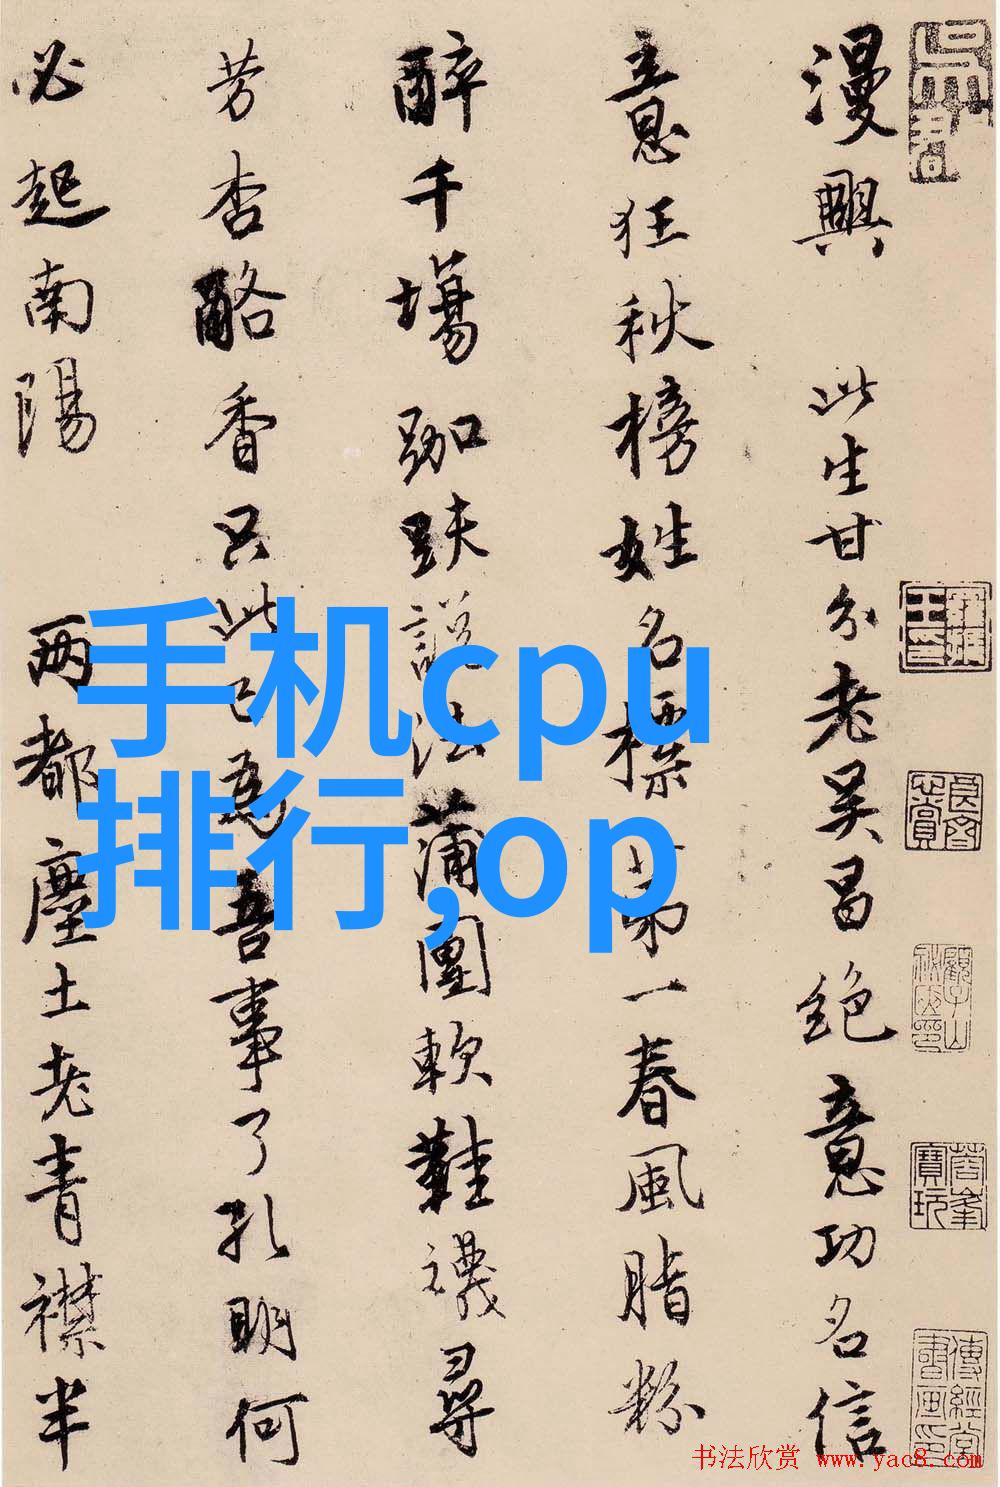 漫興 此生甘分老吳昌絕意功名信
意狂秋榜姓名標第一春風脂粉
醉千場跏趺說法蒲團軟鞋襪尋
芳杏酪香只此已為吾事了孔明何
必起南陽 兩都塵土老青襟半
手机cpu
排行,op
书法欣赏 www.yac8.com